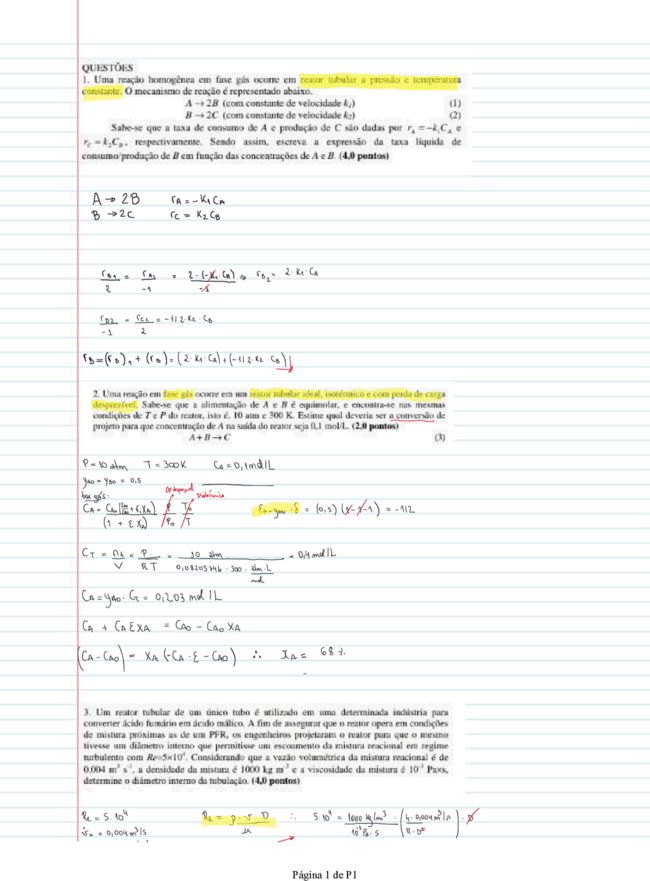 QUESTÕES
1. Uma reação homogênea em fase gás ocorre em reator tubular a pressão e temperatura
constante. O mecanismo de reação é representado abaixo.
A → 2B (com constante de velocidade k₁) (1)
B → 2C (com constante de velocidade k₂) (2)
Sabe-se que a taxa de consumo de A e produção de C são dadas por r_A = -k₁C_A e
r_C = k₂C_B, respectivamente. Sendo assim, escreva a expressão da taxa líquida de
consumo/produção de B em função das concentrações de A e B. (4,0 pontos)
A → 2B rA = -K1 CA
B → 2C rC = K2 CB
rB1/2 = rA1/-1 = 2·(-K1·CA)/-1 ⇒ rB1 = 2·K1·CA
rB2/-1 = rC2/2 = -1/2·K2·CB
rB = (rB)1 + (rB) = (2·K1·CA) + (-1/2·K2·CB)
2. Uma reação em fase gás ocorre em um reator tubular ideal, isotérmico e com perda de carga
desprezível. Sabe-se que a alimentação de A e B é equimolar, e encontra-se nas mesmas
condições de T e P do reator, isto é, 10 atm e 300 K. Estime qual deveria ser a conversão de
projeto para que concentração de A na saída do reator seja 0,1 mol/L. (2,0 pontos)
A + B → C (3)
P = 10 atm T = 300K CA = 0,1 mol/L
yA0 = yB0 = 0,5
isotérmico
CA = CA0 XA) P T0
(1 + ε XA) P0 T
δ = (0,5) (1-1-1) = -1/2
CT = nt/V = P/RT = 10 atm/0,08205746·300·atm·L/mol = 0,4 mol/L
CA = yA0·CT = 0,203 mol/L
CA + CA ε XA = CA0 - CA0 XA
(CA - CA0) = XA (-CA·ε - CA0) ∴ XA = 68 %
3. Um reator tubular de um único tubo é utilizado em uma determinada indústria para
converter ácido fumário em ácido málico. A fim de assegurar que o reator opera em condições
de mistura próximas as de um PFR, os engenheiros projetaram o reator para que o mesmo
tivesse um diâmetro interno que permitisse um escoamento da mistura reacional em regime
turbulento com Re=5×10⁴. Considerando que a vazão volumétrica da mistura reacional é de
0,004 m³ s⁻¹, a densidade da mistura é 1000 kg m⁻³ e a viscosidade da mistura é 10⁻³ Pa×s,
determine o diâmetro interno da tubulação. (4,0 pontos)
Re = 5·10⁴ Re = ρ·v·D/μ ∴ 5·10⁴ = 1000 Kg/m³/10⁻³Pa·s · (4·0,004m³/s/π·D²)·D
= 0,004m³/s
Página 1 de P1